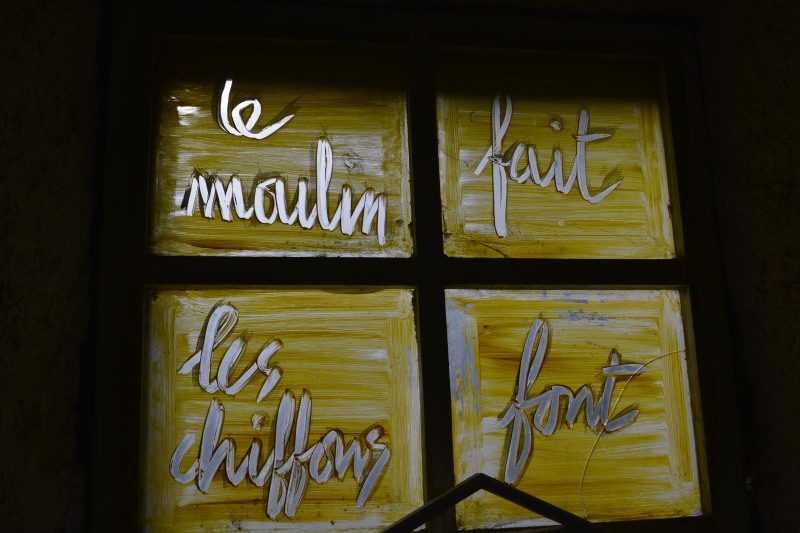 le
moulin
fait
les
chiffons
font